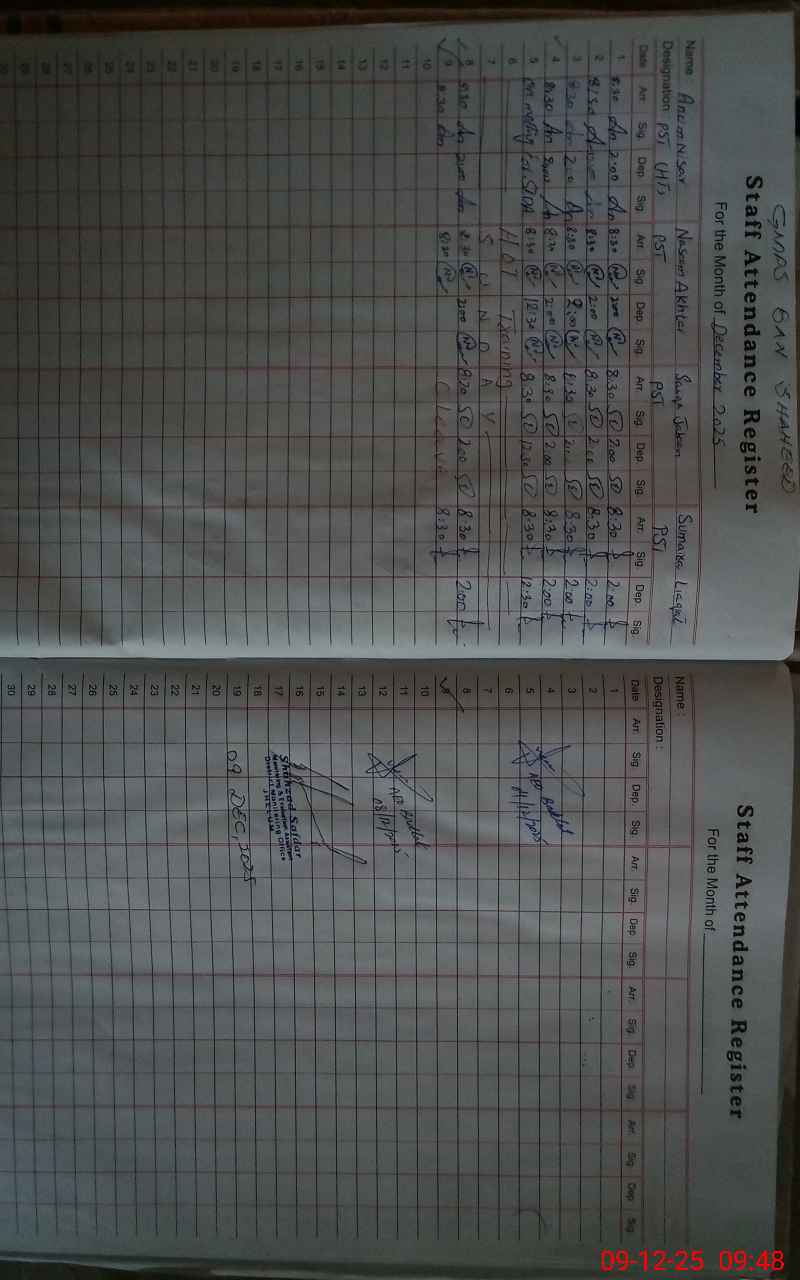 GMPS BAN SHAHEED
Staff Attendance Register
For the Month of December 2025
Name: Anum Nisar Naseem Akhtar Saiqa Jabeen Sumaira Liaqat
Designation: PST (HT) PST PST PST
Date Arr. Sig. Dep. Sig. Arr. Sig. Dep. Sig. Arr. Sig. Dep. Sig. Arr. Sig. Dep. Sig.
1 8:30 An 2:00 An 8:30 N 2:00 N 8:30 SD 2:00 SD 8:30 2:00
2 8:30 An 2:00 An 8:30 N 2:00 N 8:30 SD 2:00 SD 8:30 2:00
3 8:30 An 2:00 An 8:30 N 2:00 N 8:30 SD 2:00 SD 8:30 2:00
4 8:30 An 2:00 An 8:30 N 2:00 N 8:30 SD 2:00 SD 8:30 2:00
5 On meeting for 8:30 N 12:30 N 8:30 SD 12:30 SD 8:30 12:30
6 HOT Training
7 S U N D A Y
8 8:30 An 2:00 An 8:30 N 2:00 N 8:30 SD 2:00 SD 8:30 2:00
9 8:30 An 8:30 N C Leave 8:30
10
11
12
13
14
15
16
17
18
19
20
21
22
23
24
25
26
27
28
29
30
Staff Attendance Register
For the Month of
Name :
Designation :
Date Arr. Sig. Dep. Sig. Arr. Sig. Dep. Sig. Arr. Sig. Dep. Sig. Arr. Sig. Dep. Sig.
1
2
3
4
5
6
7
8
9
10
11
12
13
14
15
16
17
18
19
20
21
22
23
24
25
26
27
28
29
30
AEO
08/12/2025
Shahzad Safdar
Monitoring & Evaluation Assistant
District Monitoring Office
JHELUM
09 DEC, 2025
09-12-25 09:48